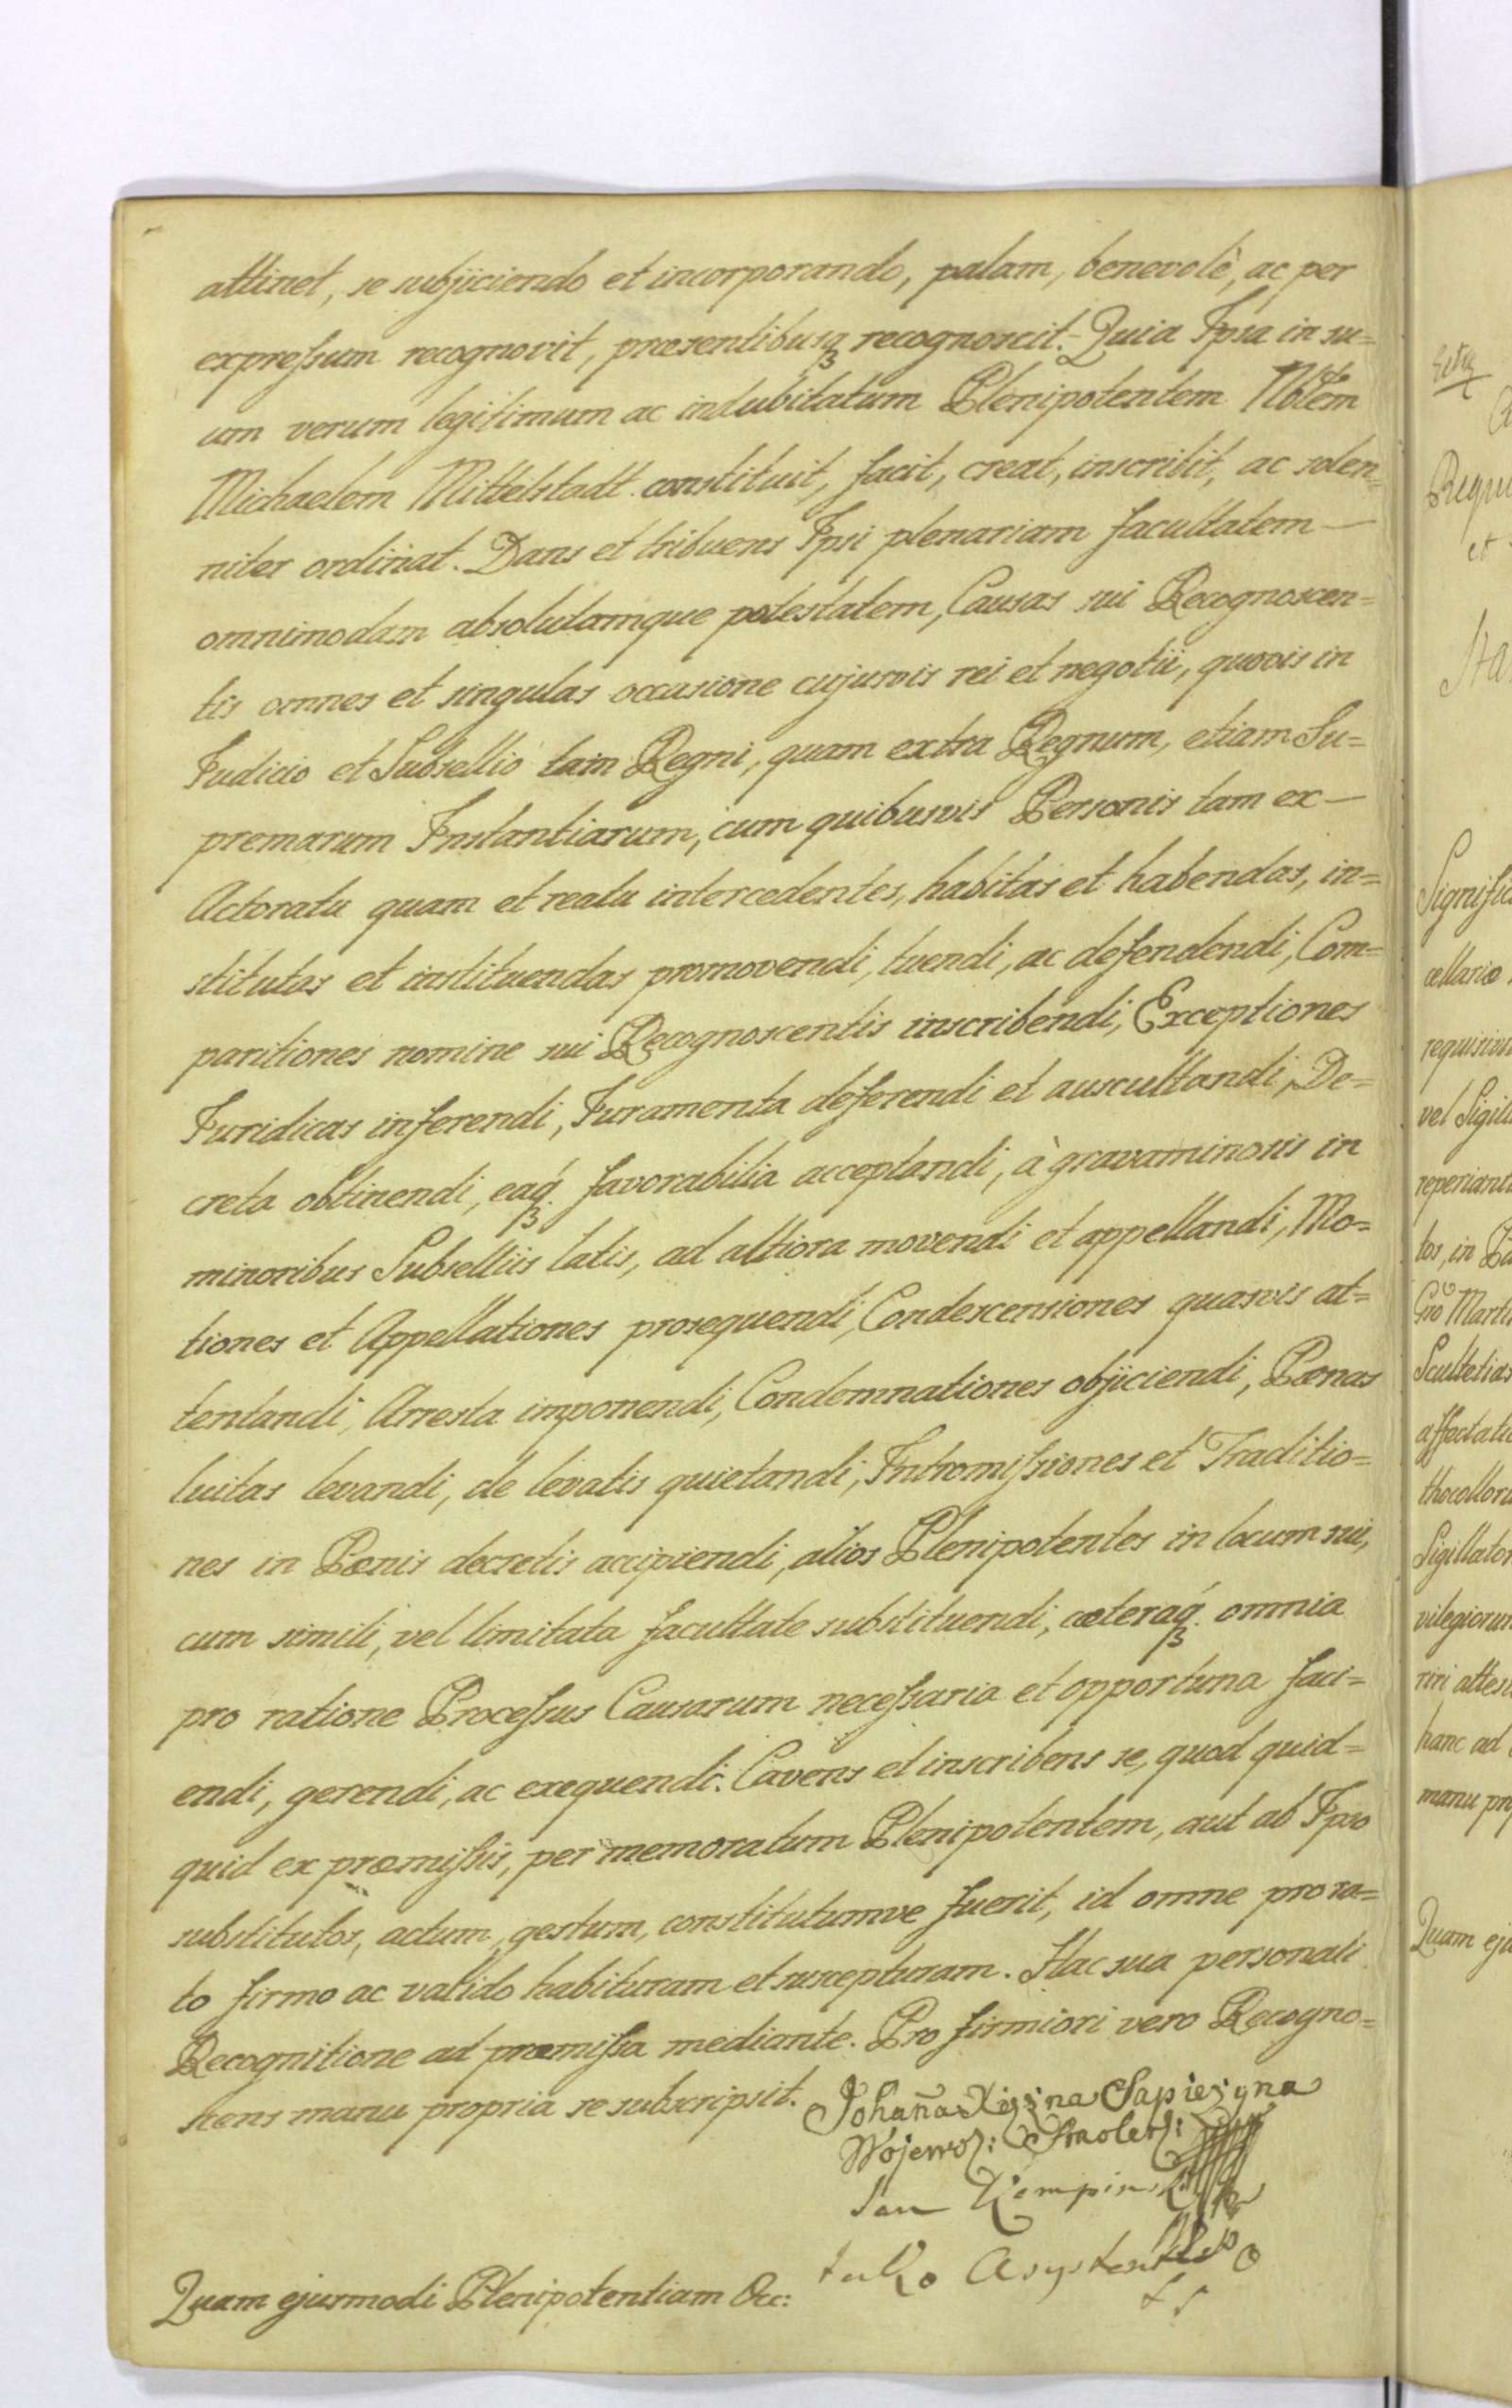 attinet, se subjiciendo et incorporando, palam, benevolè, ac per
expreſsum recognovit, præsentibusq́ꝫ recognoscit. Quia Ipsa in su=
um verum legitimum ac indubitatum Plenipotentem Nbłem
Michaelem Mittelstadt constituit, facit, creat, inscribit, ac solen=
niter ordinat. Dans et tribuens Ipsi plenariam facultatem —
omnimodam absolutamque potestatem, Causas sui Recognoscen=
tis omnes et singulas occasione cujusvis rei et negotii, quovis in
Judicio et Subsellio tam Regni, quam extra Regnum, etiam Su=
premarum Instantiarum, cum quibusvis Personis tam ex —
Actoratu quam et reatu intercedentes, habitas et habendas, in=
stitutas et instituendas promovendi, tuendi, ac defendendi, Com=
paritiones nomine sui Recognoscentis inscribendi, Exceptiones
Juridicas inferendi, Juramenta deferendi et auscultandi, De=
creta obtinendi, eaq́ꝫ favorabilia acceptandi, à gravaminosis in
minoribus Subselliis latis, ad altiora movendi et appellandi, Mo=
tiones et Appellationes prosequendi, Condescensiones quasvis at=
tentandi, Arresta imponendi, Condemnationes objiciendi, Pœnas
luitas levandi, de levatis quietandi, Intromiſsiones et Traditio=
nes in Pœnis decretis accipiendi, alios Plenipotentes in locum sui,
cum simili, vel limitata facultate substituendi, cæteraq́ꝫ omnia
pro ratione Proceſsus Causarum neceſsaria et opportuna faci=
endi, gerendi, ac exequendi. Cavens et inscribens se, quod quid=
quid ex præmiſsis, per memoratum Plenipotentem, aut ab Ipso
substitutos, actum, gestum, constitutumve fuerit, id omne pro ra=
to firmo ac valido habituram et suscepturam. Hac sua personali
Recognitione ad præmiſsa mediante. Pro firmiori vero Recogno=
scens manu propria se subscripsit. Johaña Xięzna Sapiezyna
Wojewodz:
Jan Kempinski
tako Asystent
LS
Quam ejusmodi Plenipotentiam &c: